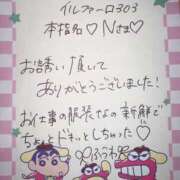 イルファーロ303
本指名♡Nさま♡
お誘い頂いて
ありがとうございました!
お仕事の服装なの新鮮で
ちょっとドキッとしちゃった♡